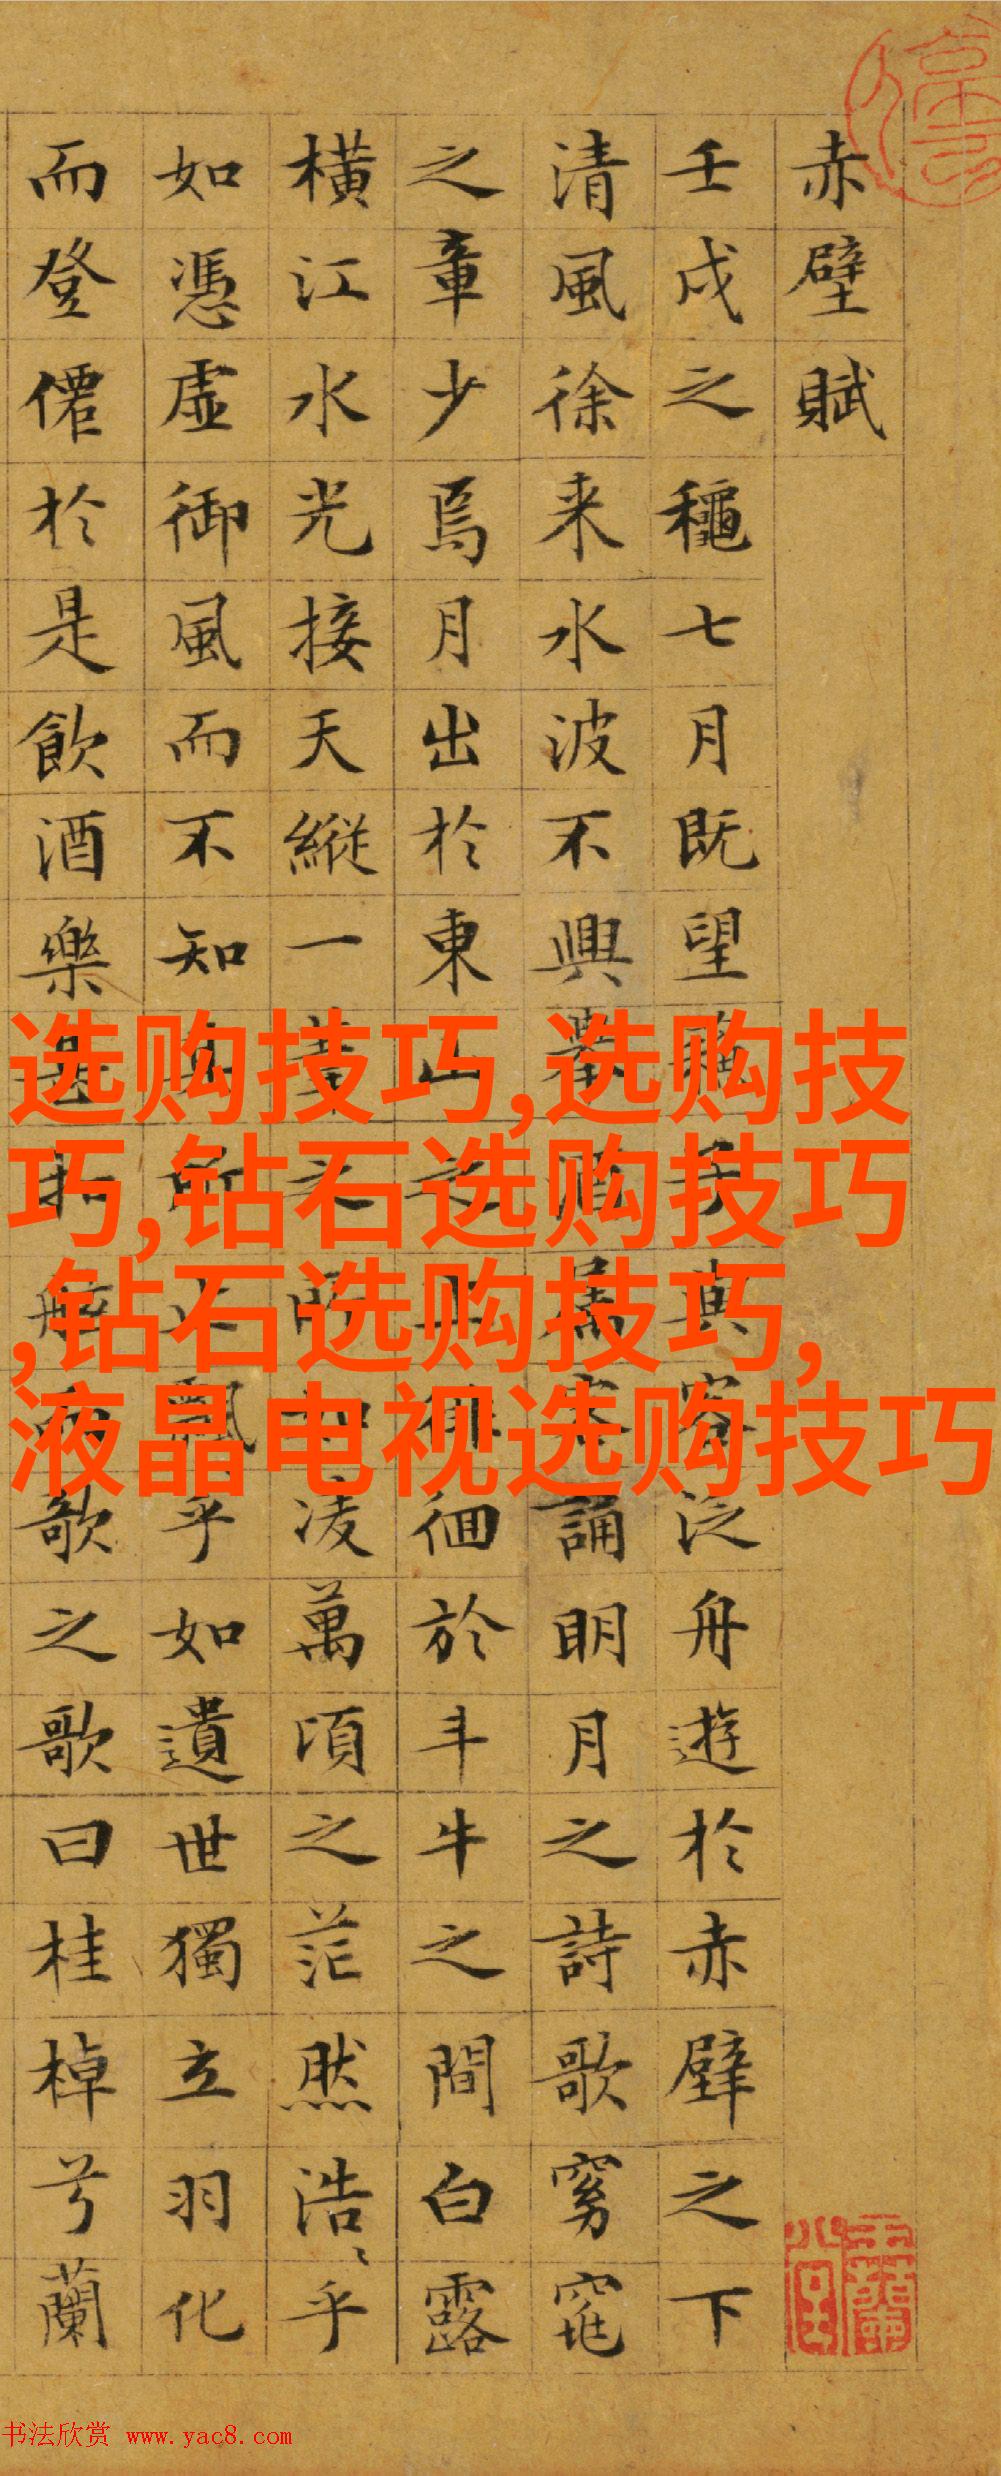 赤壁賦
壬戌之龝七月既望蘇子與客泛舟遊於赤壁之下
清風徐来水波不興舉酒屬客誦明月之詩歌窈窕
之章少焉月出於東山之上徘徊於斗牛之間白露
橫江水光接天縱一葦之所如凌萬頃之茫然浩〻乎
如憑虛御風而不知其所止飄乎如遺世獨立羽化
而登僊於是飲酒樂甚扣舷而歌之歌曰桂棹兮蘭
选购技巧,选购技
巧,钻石选购技巧
,钻石选购技巧,
液晶电视选购技巧
书法欣赏 www.yac8.com